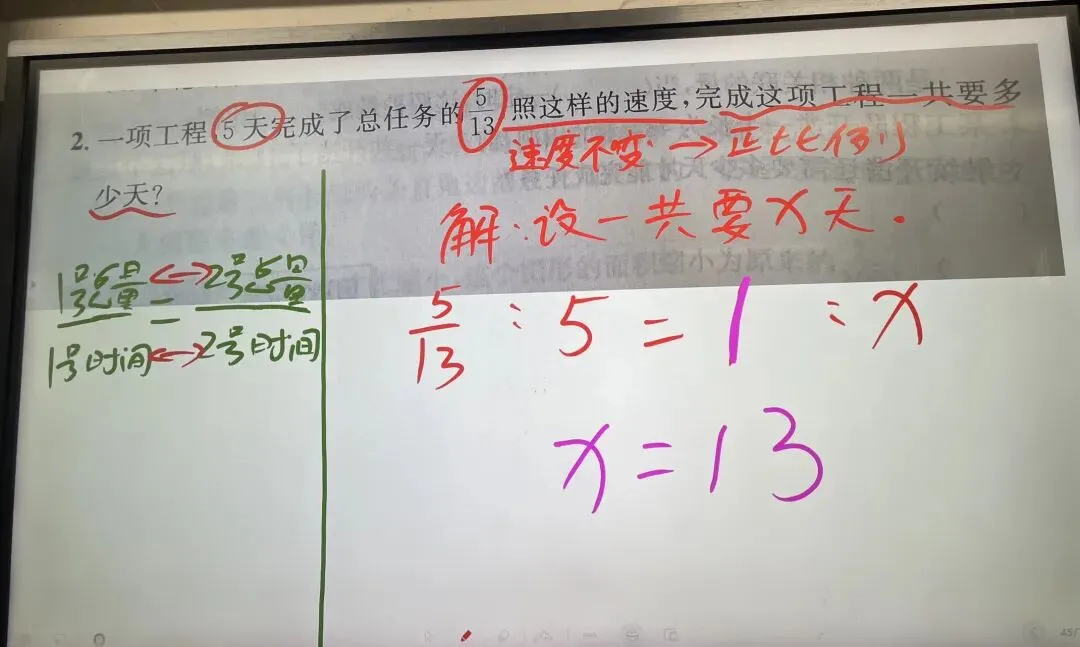 2. 一项工程,5天完成了总任务的5/13照这样的速度,完成这项工程一共要多
少天?
速度不变→正比例
解:设一共要x天.
1号总量↔2号总量
=
1号时间↔2号时间
5/13 : 5 = 1 : x
x=13
45/